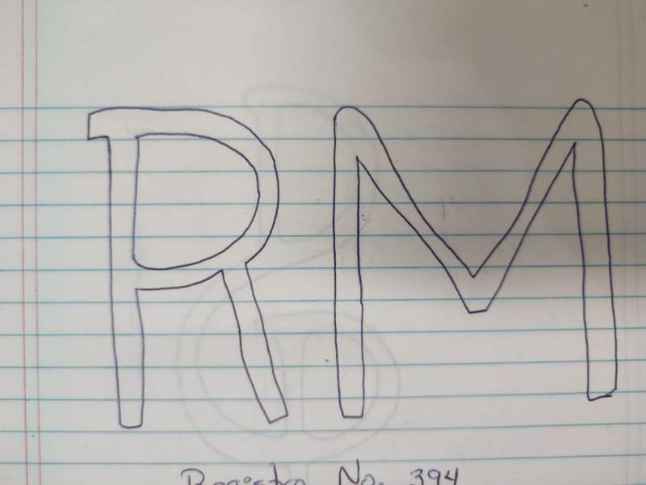 RM
Registro No. 394